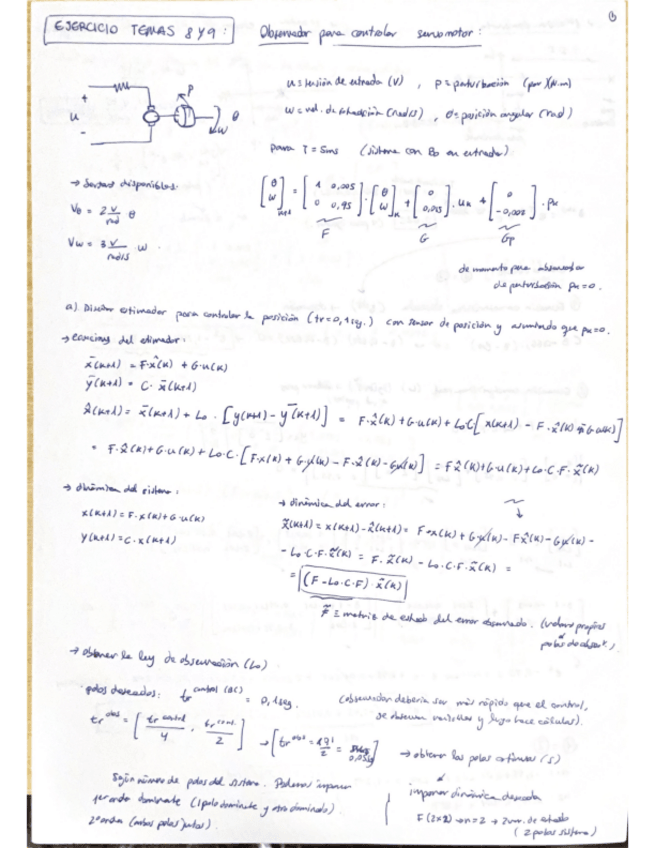 EJERCICIO TEMAS 8 Y 9: Observador para controlar servomotor:
u ≡ tensión de entrada (V), P ≡ perturbación (par)(N·m)
ω ≡ vel. de rotación (rad/s), θ ≡ posición angular (rad)
u + - P θ ω
para T = 5ms (sistema con B0 en entrada)
→ Sensores disponibles:
Vθ = 2 V/rad θ
Vω = 3 V/rad/s · ω
[θ ω]k+1 = [1 0,005 0 0,95] · [θ ω]k + [0 0,015] · uk + [0 -0,002] · pk
F G Gp
de momento para observador
de perturbación pk = 0.
a) Diseñar estimador para controlar la posición (tr = 0,1 seg.) con sensor de posición y asumiendo que pk = 0.
→ ecuaciones del estimador:
x̄(k+1) = F·x̂(k) + G·u(k)
ȳ(k+1) = C·x̄(k+1)
x̂(k+1) = x̄(k+1) + Lo·[y(k+1) - ȳ(k+1)] = F·x̂(k) + G·u(k) + Lo·C[x(k+1) - F·x̂(k) - G·u(k)]
= F·x̂(k) + G·u(k) + Lo·C·[F·x(k) + G·u(k) - F·x̂(k) - G·u(k)] = F·x̂(k) + G·u(k) + Lo·C·F·x̃(k)
→ dinámica del sistema:
x(k+1) = F·x(k) + G·u(k)
y(k+1) = C·x(k+1)
→ dinámica del error:
x̃(k+1) = x(k+1) - x̂(k+1) = F·x(k) + G·u(k) - F·x̂(k) - G·u(k) -
- Lo·C·F·x̃(k) = F·x̃(k) - Lo·C·F·x̃(k) =
= (F - Lo·C·F)·x̃(k)
F̃ ≡ matriz de estado del error observado. (valores propios
polos de observ.)
→ obtener la ley de observación (Lo).
· polos deseados: tr control (BC) = 0,1 seg.
(observador debería ser más rápido que el control,
se observan variables y luego hace cálculos).
tr obs = [tr control / 4, tr cont. / 2] → [tr obs = 0,1 / 2 = 0,05s] → obtener los polos continuos (s)
Según número de polos del sistema. Podemos imponer
1er orden dominante (1 polo dominante y otro dominado).
2º orden (ambos polos juntos).
imponer dinámica deseada
F (2x2) → n = 2 → 2 var. de estado
(2 polos sistema)